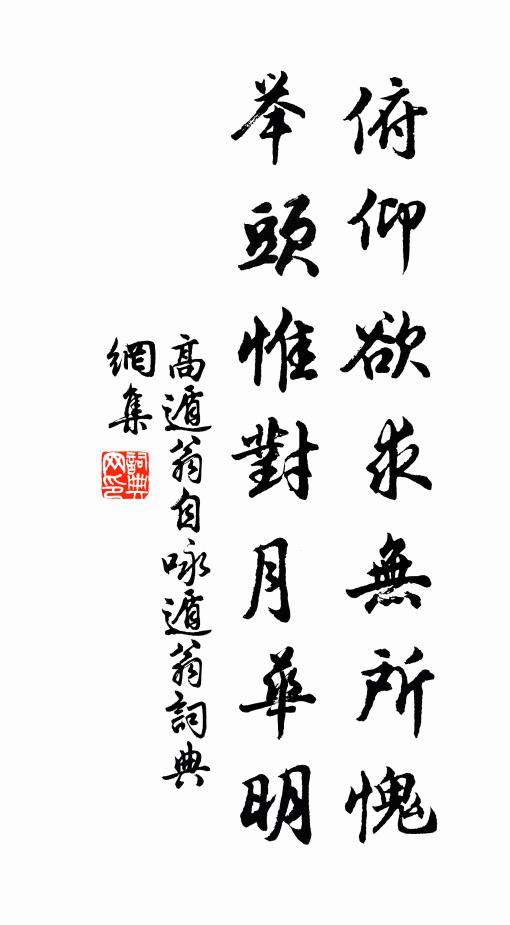 俯仰欲求無所愧
举頭惟對月華明
高遁翁自咏遁翁詞典
網集
詞典
网印